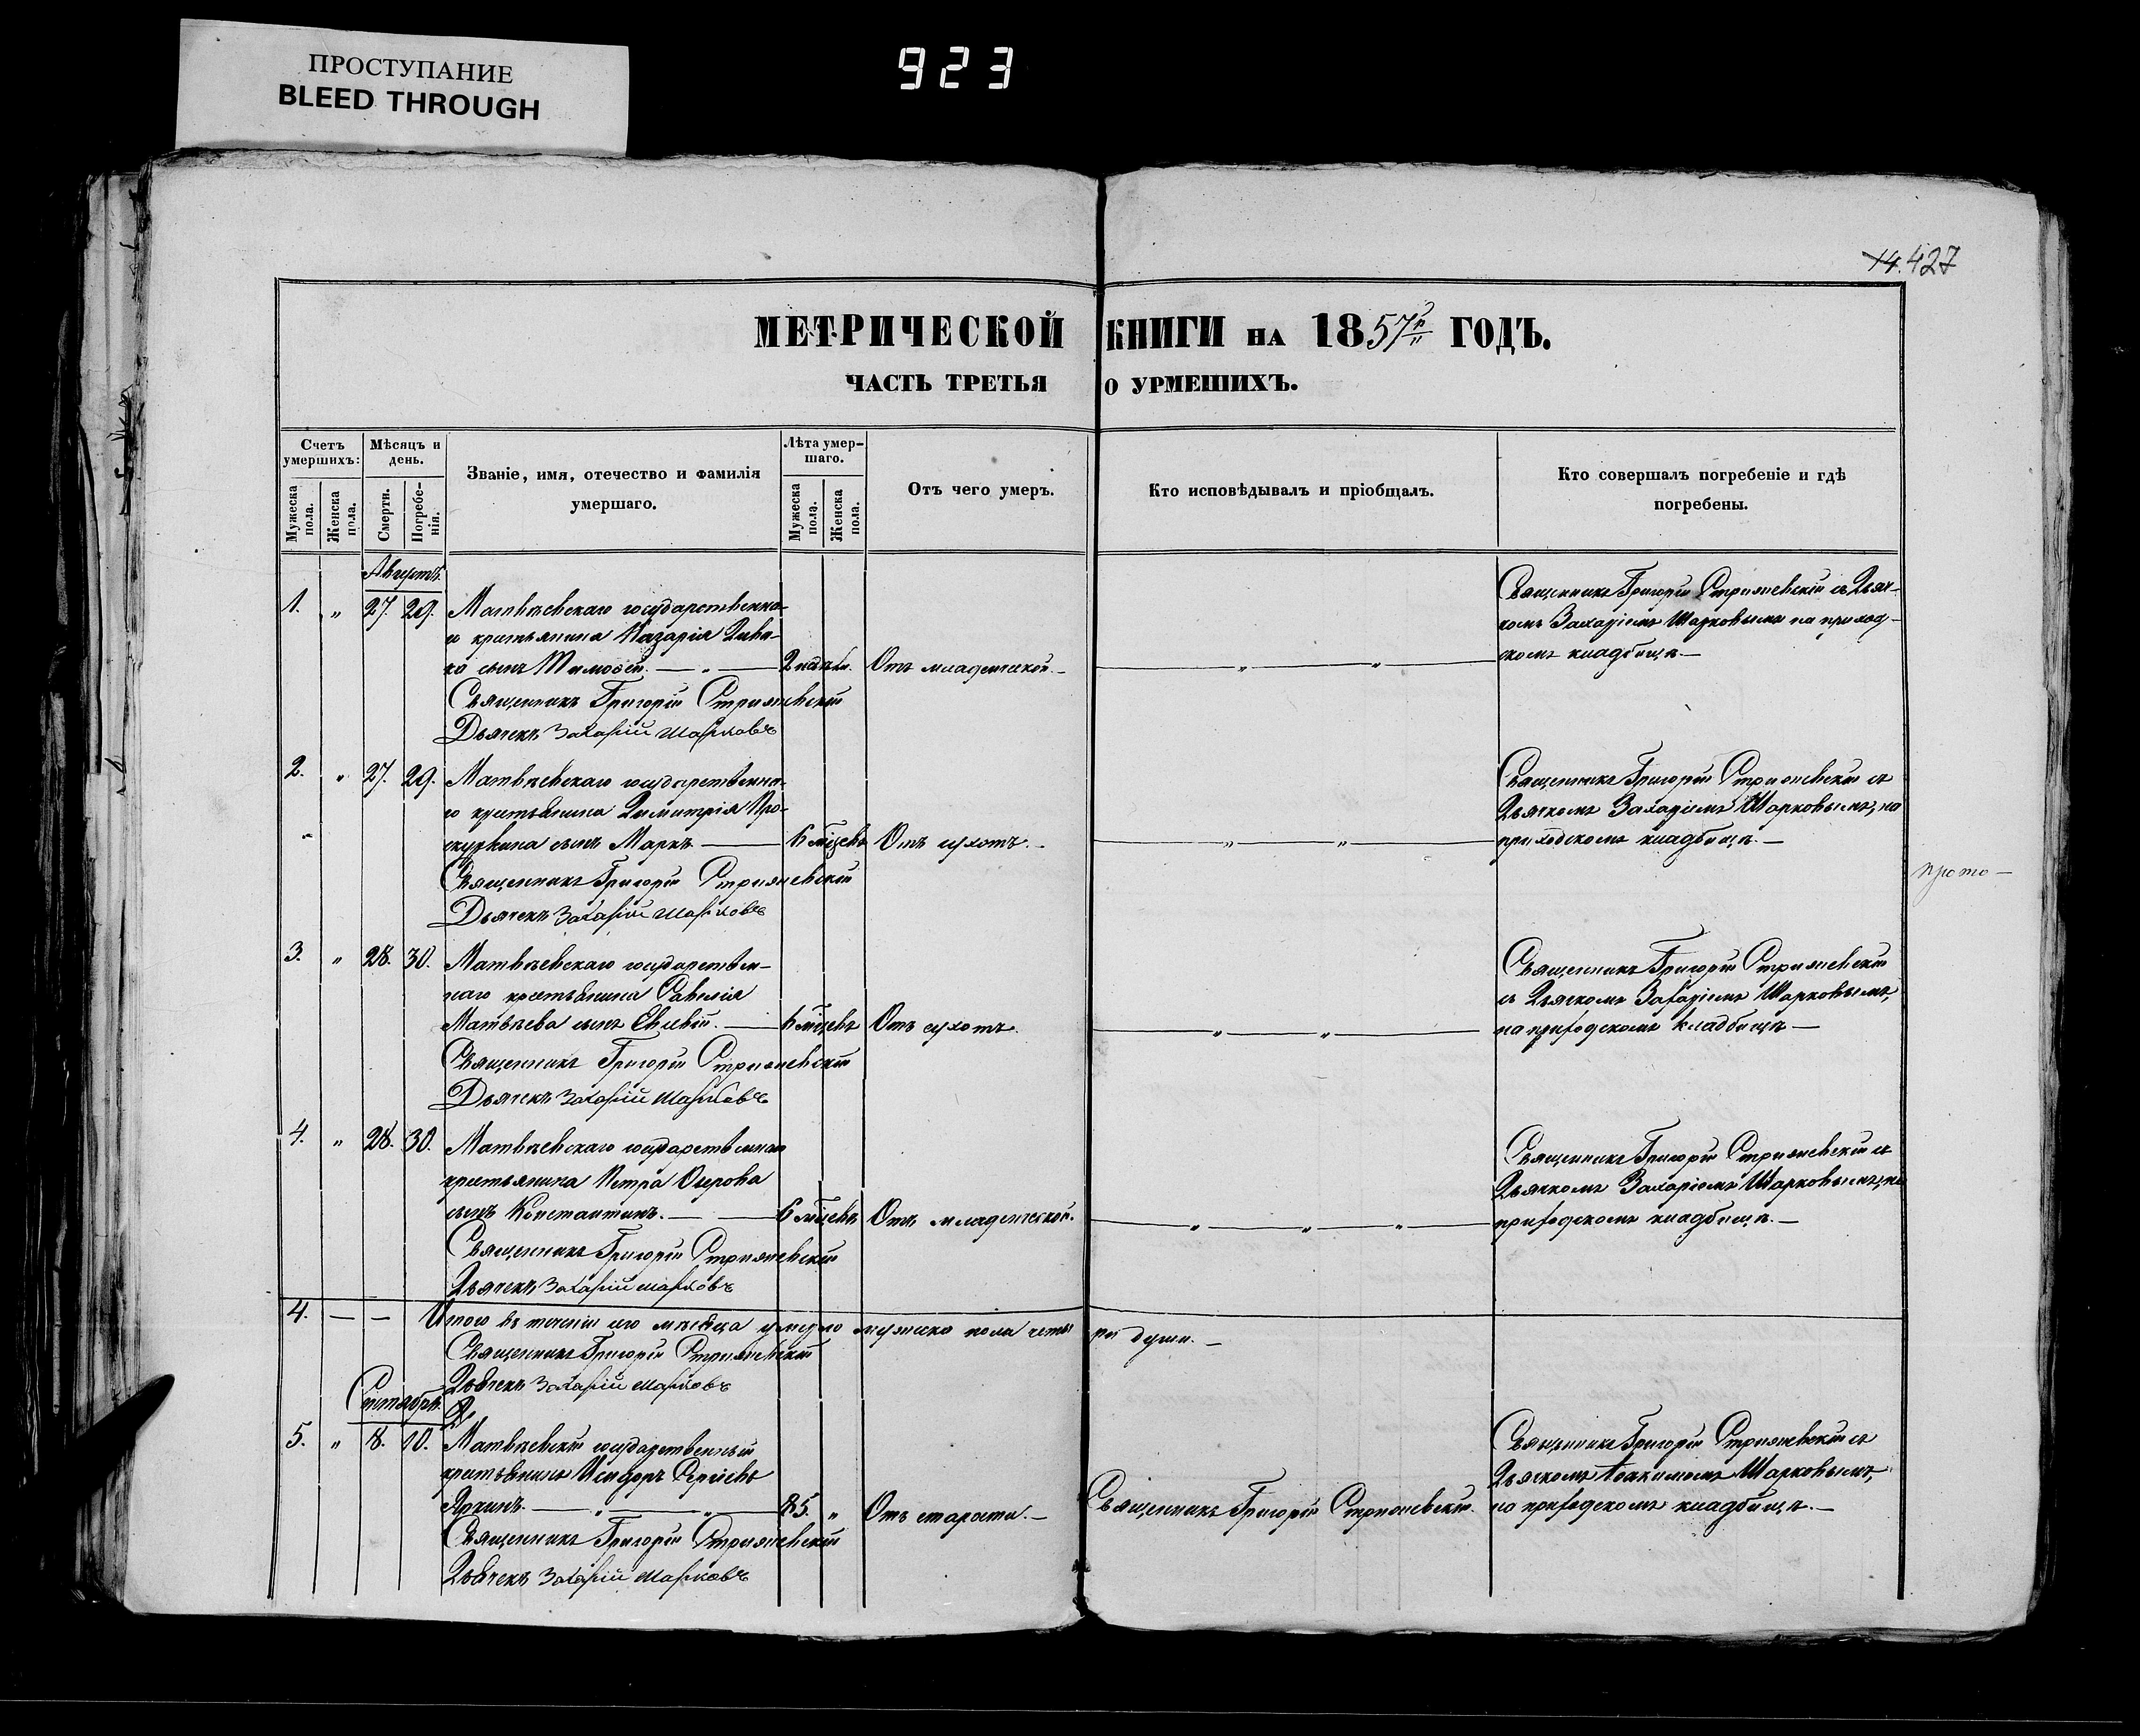 ПРОСТУПАНИЕ
BLEED THROUGH
923
14. 427
МЕТРИЧЕСКОЙ КНИГИ НА 1857й ГОДЪ.
ЧАСТЬ ТРЕТЬЯ О УРМЕШИХЪ.
Счетъ умершихъ:
Мужеска пола.
Женска пола.
Мѣсяцъ и день.
Смерти.
Погребе-нія.
Званіе, имя, отечество и фамилія
умершаго.
Лѣта умер-шаго.
Мужеска пола.
Женска пола.
Отъ чего умеръ.
Кто исповѣдывалъ и пріобщалъ.
Кто совершалъ погребеніе и гдѣ
погребены.
Августъ.
1. " 27. 29. Матвѣевскаго государственна-
го крестьянина Назарія
сынъ Тимоѳей. — " — 2 недѣли. Отъ младенческой. —
— " — " —
Священникъ Григорій Стрижевскій съ Дьяч-
комъ Захаріемъ Шарковымъ на приход-
скомъ кладбищѣ. —
Священникъ Григорій Стрижевскій
Дьячекъ Захарій Шарковъ
2. " 27. 29. Матвѣевскаго государственна-
го крестьянина Димитрія Про-
скурвина сынъ Маркъ — 6 мѣсцевъ Отъ сухотъ. —
— " — " —
Священникъ Григорій Стрижевскій съ
Дьячкомъ Захаріемъ Шарковымъ, на
приходскомъ кладбищѣ. —
Священникъ Григорій Стрижевскій
Дьячекъ Захарій Шарковъ
прото —
3. " 28. 30. Матвѣевскаго государствен-
наго крестьянина Савелія
Матвѣева сынъ Евсевій. — 6 мѣсцевъ Отъ сухотъ.
— " — " —
Священникъ Григорій Стрижевскій
съ Дьячкомъ Захаріемъ Шарковымъ,
на приходскомъ кладбищѣ —
Священникъ Григорій Стрижевскій
Дьячекъ Захарій Шарковъ
4. " 28. 30. Матвѣевскаго государственнаго
крестьянина Петра Озерова
сынъ Константинъ. — 6 мѣсцевъ Отъ младенческой.
— " — " — " —
Священникъ Григорій Стрижевскій съ
Дьячкомъ Захаріемъ Шарковымъ, на
приходскомъ кладбищѣ. —
Священникъ Григорій Стрижевскій
Дьячекъ Захарій Шарковъ
4. — — Итого въ теченіи сего мѣсяца умерло мужеска пола четы ре души. —
Священникъ Григорій Стрижевскій
Дьячекъ Захарій Шарковъ
Сентябрь.
5. " 8. 10. Матвѣевскій государственный
крестьянинъ Исидоръ Сергіевъ
Яркинъ. — " — " — 85. " Отъ старости. —
Священникъ Григорій Стрижевскій.
Священникъ Григорій Стрижевскій съ
Дьячкомъ Іоакимомъ Шарковымъ,
на приходскомъ кладбищѣ. —
Священникъ Григорій Стрижевскій
Дьячекъ Захарій Шарковъ